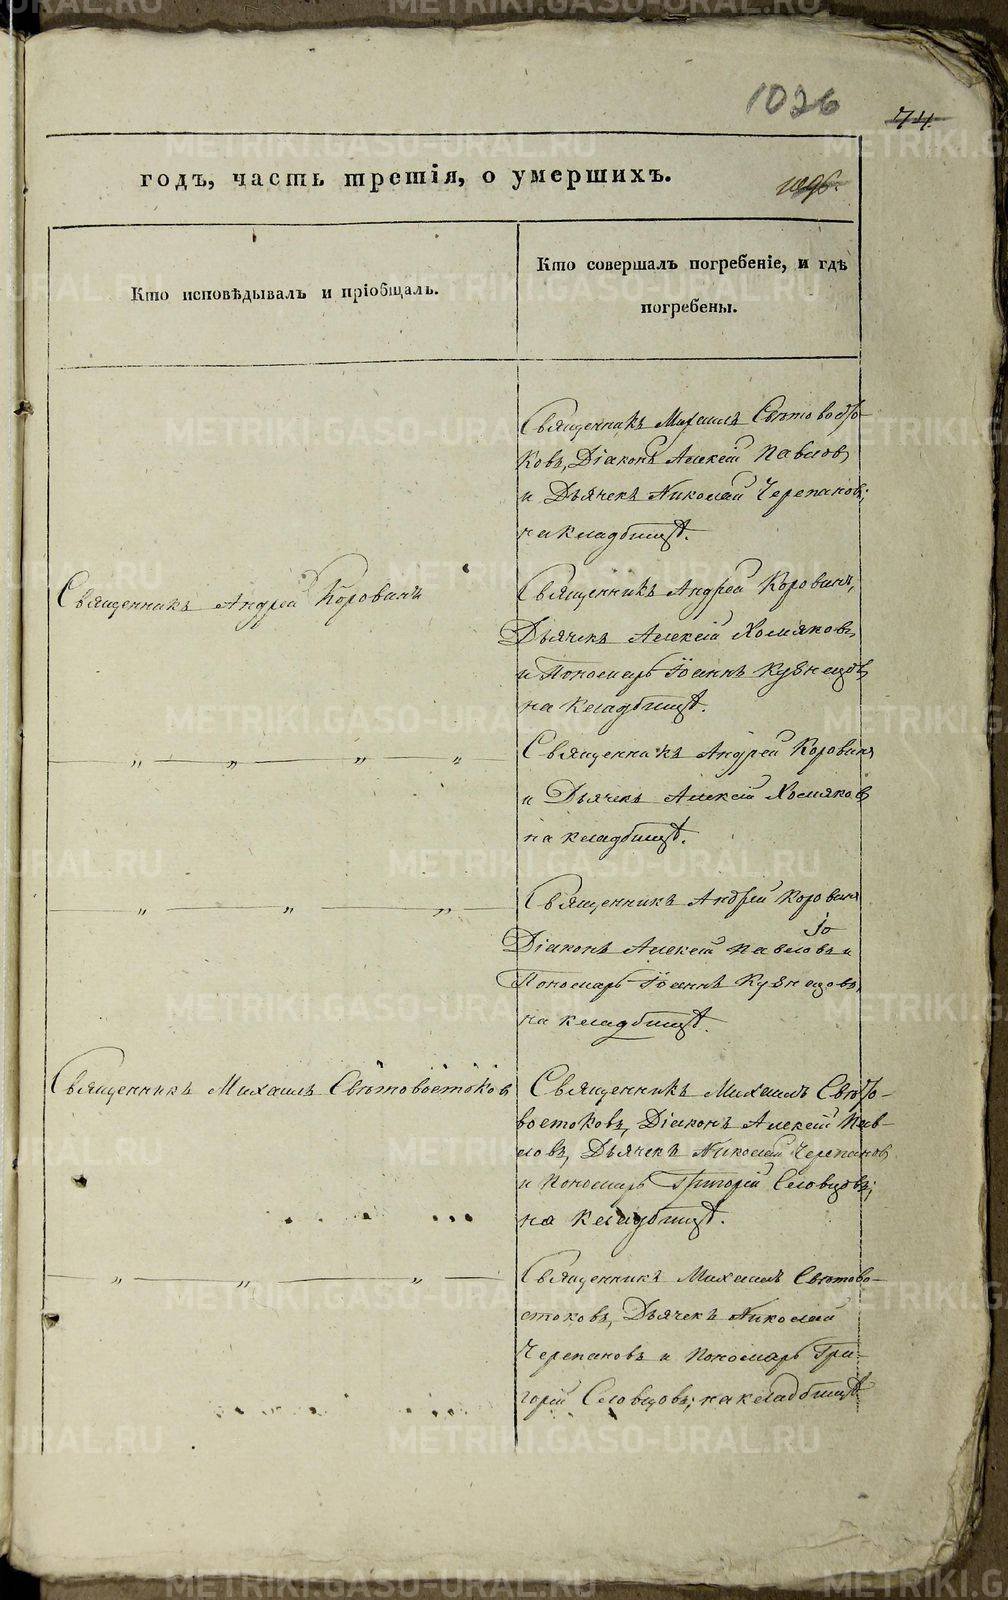 1026
74
годъ, часть третія, о умершихъ.
Кто исповѣдывалъ и пріобщалъ.
Кто совершалъ погребеніе, и гдѣ
погребены.
Священникъ Михаилъ Свѣтовосто-
ковъ, Діаконъ Алексій Павловъ
и Дьячекъ Николай Черепановъ;
на кладбищѣ.
Священникъ Андрей Коровинъ
Священникъ Андрей Коровинъ,
Дьячекъ Алексій Хомяковъ,
и Пономарь Іоаннъ Кузнецовъ
на кладбищѣ.
„ „ „ „
Священникъ Андрей Коровинъ
и Дьячекъ Алексій Хомяковъ
на кладбищѣ.
„ „ „
Священникъ Андрей Коровинъ
Діаконъ Алексій Павловъ и
Пономарь Іоаннъ Кузнецовъ,
на кладбищѣ.
Священникъ Михаилъ Свѣтовостоковъ
Священникъ Михаилъ Свѣто-
востоковъ, Діаконъ Алексій Пав-
ловъ, Дьячекъ Николай Черепановъ
и Пономарь Григорій Словцовъ;
на кладбищѣ.
„ „ „
Священникъ Михаилъ Свѣтово-
стоковъ, Дьячекъ Николай
Черепановъ и Пономарь Гри-
горій Словцовъ; на кладбищѣ
METRIKI.GASO-URAL.RU